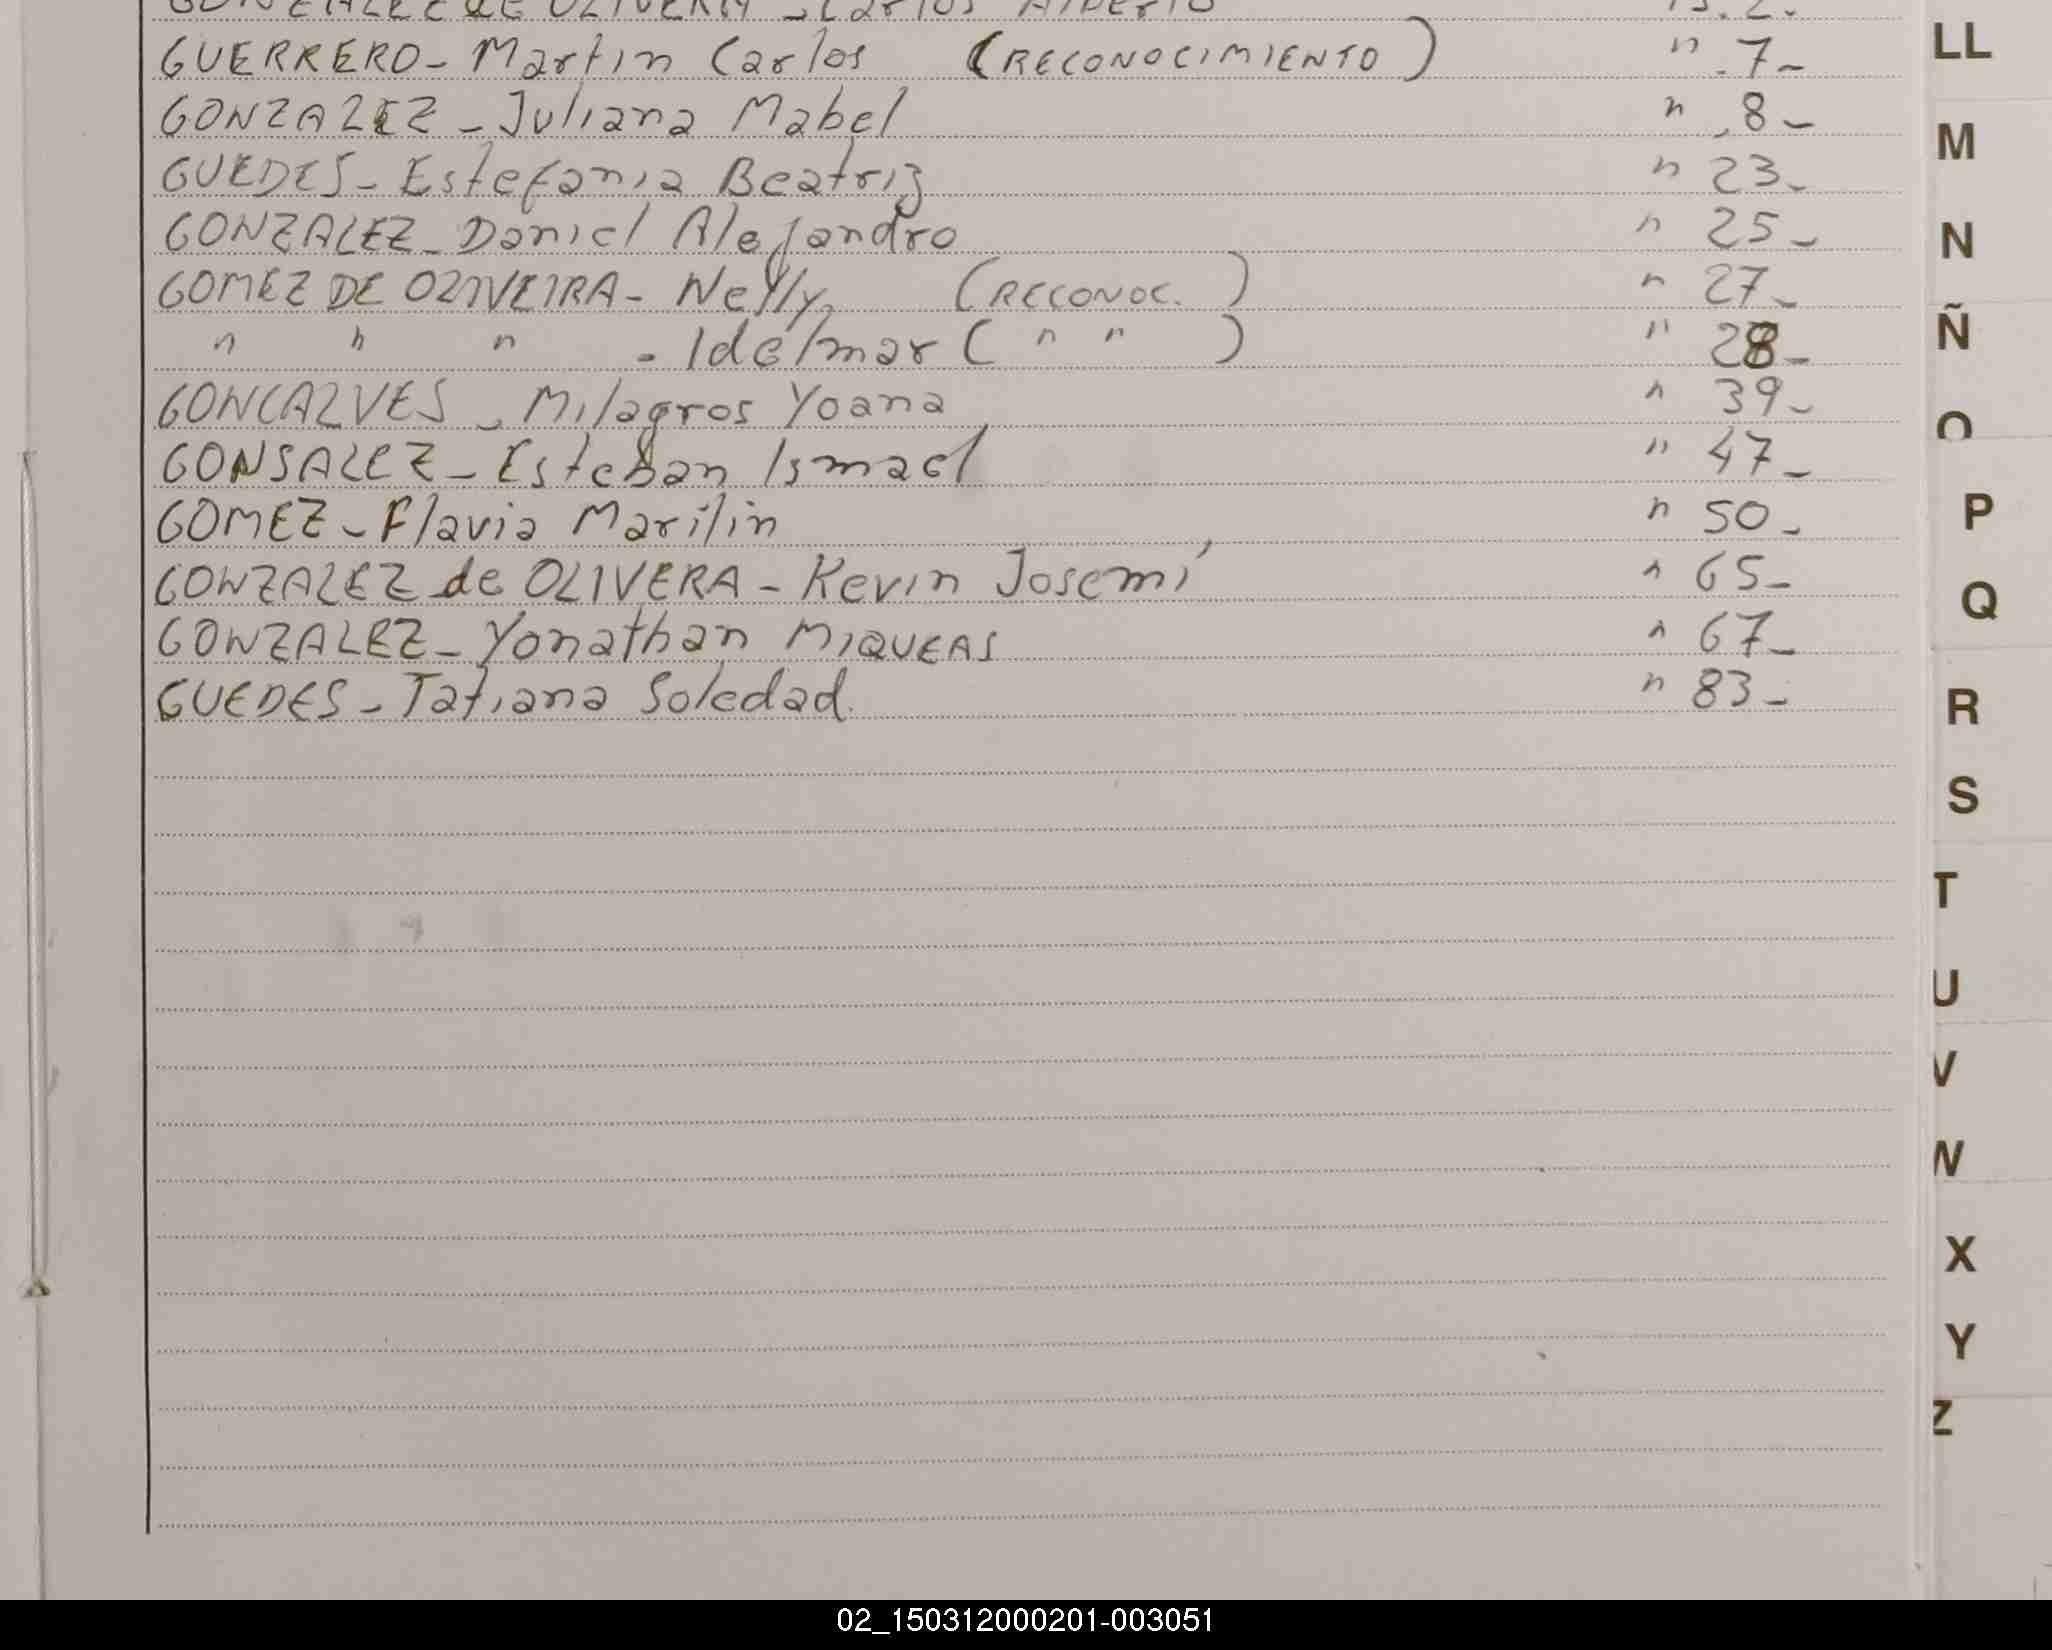 GONZALEZ de OLIVERA - Carlos Alberto 15.2.
GUERRERO - Martin Carlos (RECONOCIMIENTO) " 7-
GONZALEZ - Juliana Mabel " 8-
GUEDES - Estefania Beatriz " 23-
GONZALEZ - Daniel Alejandro " 25-
GOMEZ DE OLIVEIRA - Nelly (RECONOC.) " 27-
" " " - Idelmar ( " " ) " 28-
GONCALVES - Milagros Yoana " 39-
GONSALEZ - Esteban Ismael " 47-
GOMEZ - Flavia Marilin " 50-
GONZALEZ de OLIVERA - Kevin Josemí " 65-
GONZALEZ - Yonathan MIQUEAS " 67-
GUEDES - Tatiana Soledad. " 83-
LL
M
N
Ñ
O
P
Q
R
S
T
U
V
W
X
Y
Z
02_150312000201-003051